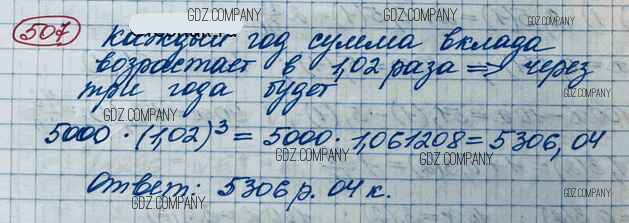 GDZ.COMPANY GDZ.COMPANY
GDZ.COMPANY
507 Каждый год сумма вклада
возрастает в 1,02 раза => через
GDZ.COMPANY GDZ.COMPANY
три года будет
GDZ.COMPANY
5000 · (1,02)³ = 5000 · 1,061208 = 5306,04
GDZ.COMPANY GDZ.COMPANY GDZ.COMPANY
GDZ.COMPANY
Ответ: 5306 р. 04 к.
GDZ.COMPANY GDZ.COMPANY
GDZ.COMPANY